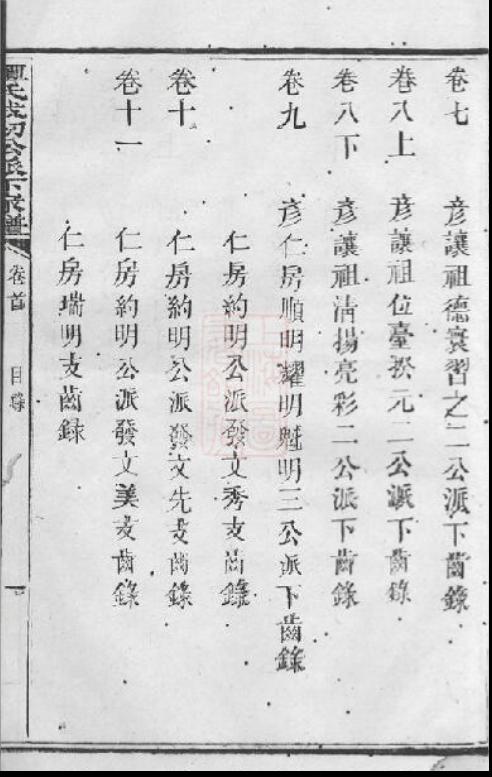 卷七　彦讓祖德寰習之二公派下齒錄
卷八上　彦讓祖位臺揆元二公派下齒錄
卷八下　彦讓祖清揚亮彩二公派下齒錄
卷九　彦仁房順明耀明魁明三公派下齒錄
仁房約明公派發文秀支齒錄
卷十　仁房約明公派發文先支齒錄
卷十一　仁房約明公派發文美支齒錄
仁房瑞明支齒錄
公派下家譜
卷首　目錄